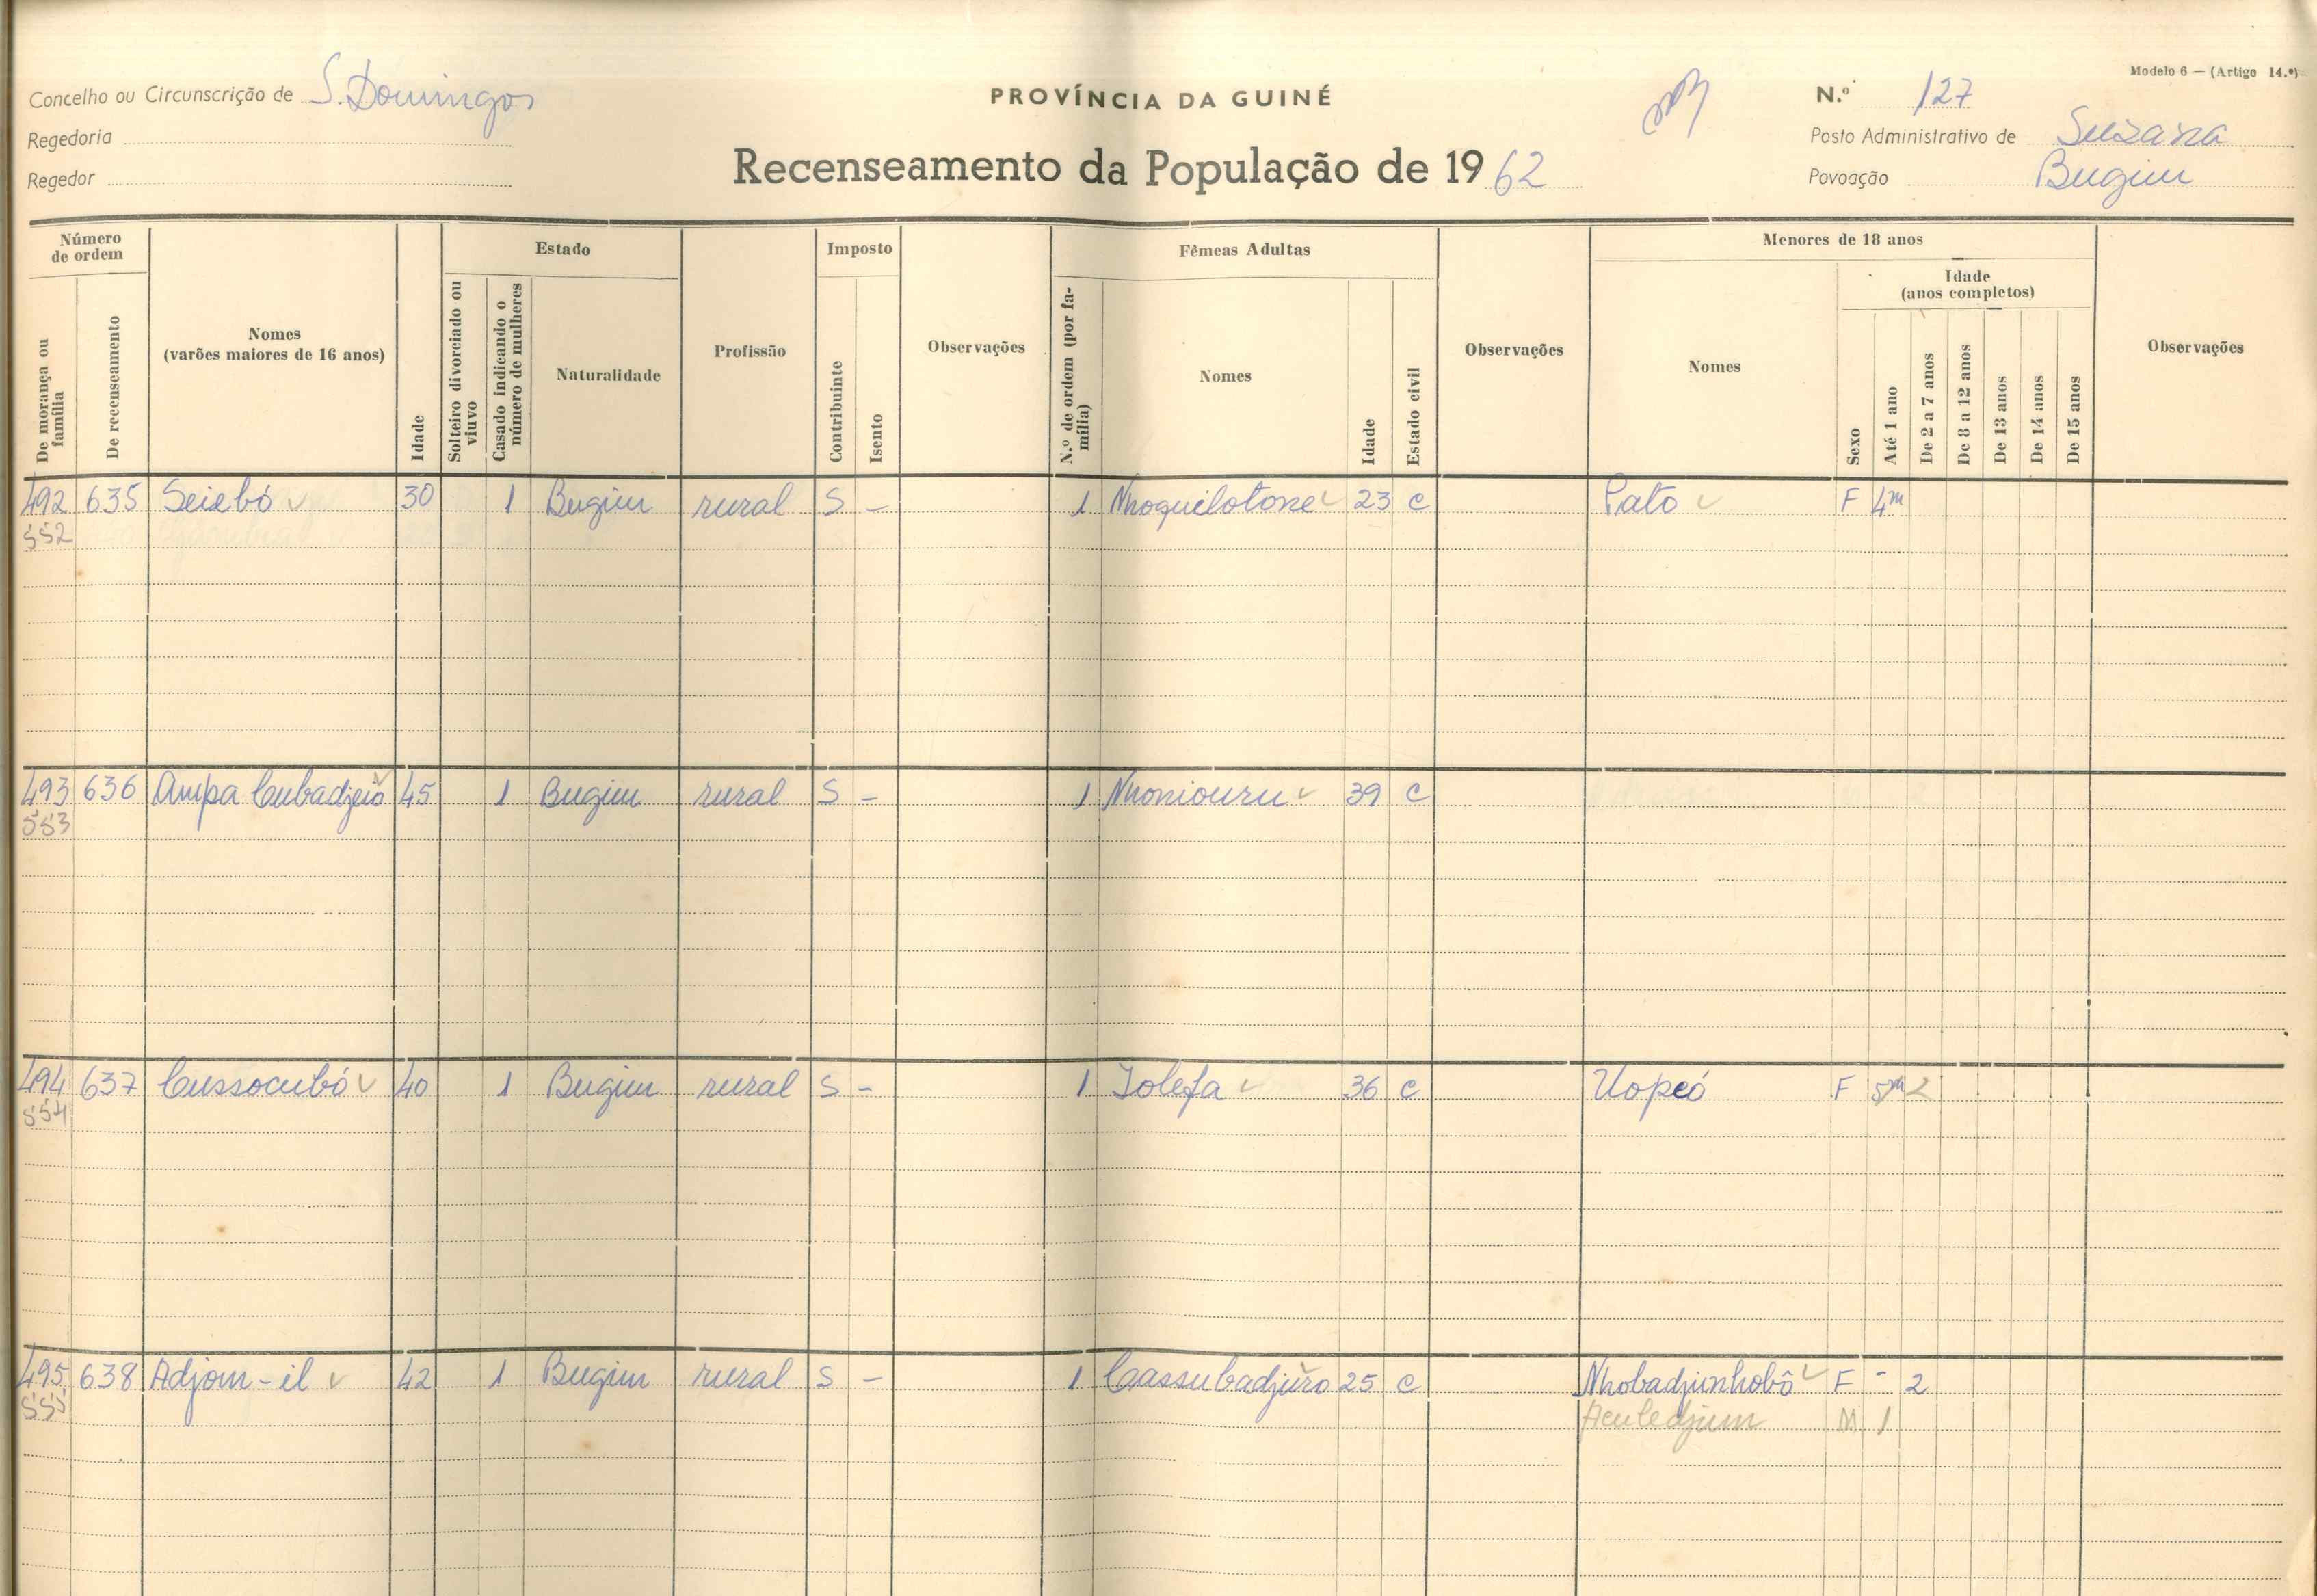 Modelo 6 — (Artigo 14.º)
Concelho ou Circunscrição de S. Domingos
PROVÍNCIA DA GUINÉ
N.º 127
Regedoria
Posto Administrativo de Suzana
Recenseamento da População de 1962
Regedor
Povoação Bugim
Número de ordem
Estado
Imposto
Fêmeas Adultas
Menores de 18 anos
Idade (anos completos)
De morança ou família
De recenseamento
Nomes (varões maiores de 16 anos)
Idade
Solteiro divorciado ou viuvo
Casado indicando o número de mulheres
Naturalidade
Profissão
Contribuinte
Isento
Observações
N.º de ordem (por família)
Nomes
Idade
Estado civil
Observações
Nomes
Sexo
Até 1 ano
De 2 a 7 anos
De 8 a 12 anos
De 13 anos
De 14 anos
De 15 anos
Observações
492 635 Seiebó 30 1 Bugim rural S - 1 Nhoquilotone 23 c Pato F 4m
552
493 636 Ampa Cubadjeió 45 1 Bugim rural S - 1 Nhoniouru 39 c
553
494 637 Cussocubó 40 1 Bugim rural S - 1 Jolefa 36 c Uopeó F 5m 2
554
495 638 Adjom-il 42 1 Bugim rural S - 1 Caassubadjuro 25 c Nhobadjinhobô F - 2
555 Aculedjum M 1